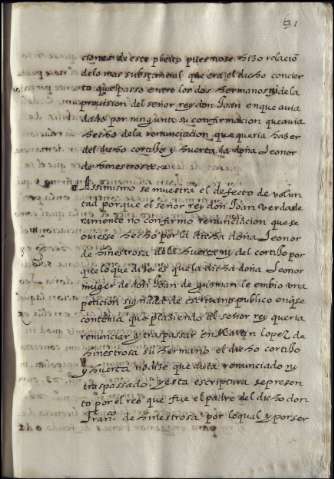 61
ciones de este pleito pues no se hizo relaçiõ
de lo mas sustançial que era el dicho concier
to que passo entre los dos hermanos ni de la
provision del señor rey don Joan en que avia
dadas por ningunas su confirmacion que avia
hecho de la renunciacion que queria hazer
del dicho cortijo y huerta la doña Leonor
de hinestrosa
Assimismo se muestra el defecto de volun
tad porque el señor rey don Joan verdade
ramente no confirmo renunciacion que se
oviesse hecho por la dicha doña Leonor
de hinestrosa de la huerta ni del cortijo por
que lo que dize es que la dicha doña Leonor
muger de don Joan de guzman le embio una
peticion signada de escrivano publico en q̃ se
contenia que plaziendo al señor rey queria
renunciar y traspassar en Martin Lopez de
hinestrosa su hermano el dicho cortijo
y huerta no dize que avia renunciado ni
traspassado y esta escriptura se presen
to por el reo que fue el padre del dicho don
Fran.co de hinestrosa por lo qual y por ser